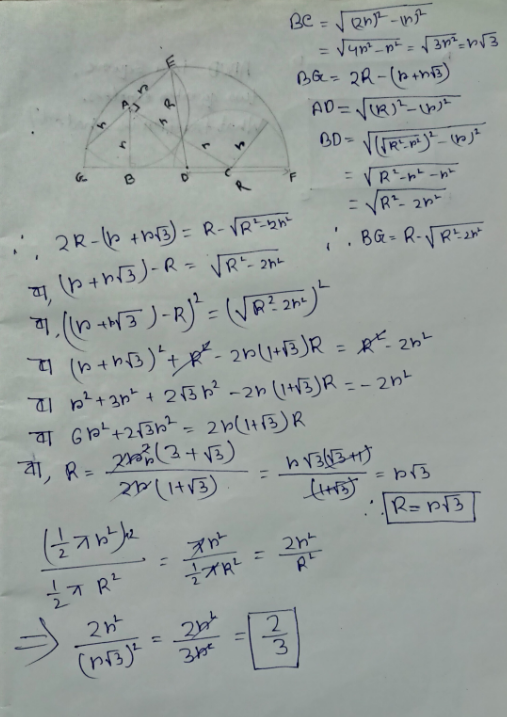 BC = √(2r)² - (r)²
= √4r² - r² = √3r² = r√3
BG = 2R - (r + r√3)
AD = √(R)² - (r)²
BD = √(√R² - r²)² - (r)²
= √R² - r² - r²
= √R² - 2r²
∴ BG = R - √R² - 2r²
E
A
r
r
R
r
r
r
r
G B D C F
R
∴ 2R - (r + r√3) = R - √R² - 2r²
বা, (r + r√3) - R = √R² - 2r²
বা, ((r + r√3) - R)² = (√R² - 2r²)²
বা (r + r√3)² + R² - 2r(1+√3)R = R² - 2r²
বা r² + 3r² + 2√3r² - 2r(1+√3)R = -2r²
বা 6r² + 2√3r² = 2r(1+√3)R
বা, R = 2r²(3 + √3) / 2r(1+√3) = r√3(√3+1) / (1+√3) = r√3
∴ R = r√3
(½πr²)×2 / ½πR² = πr² / ½πR² = 2r² / R²
⇒ 2r² / (r√3)² = 2r² / 3r² = 2/3